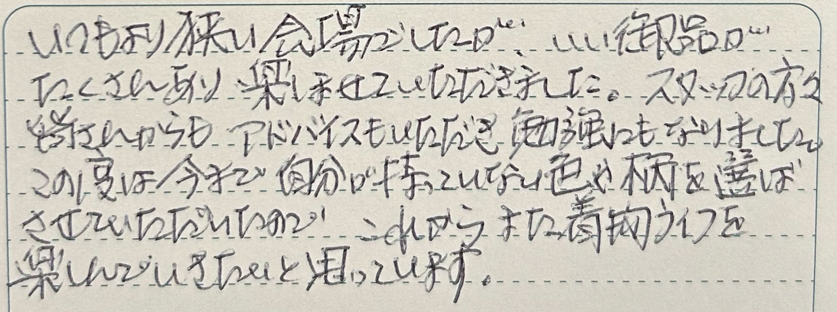 いつもより狭い会場でしたが、いい御品が
たくさんあり楽しませていただきました。スタッフの方々
皆さんからも アドバイスもいただき 勉強にもなりました。
この度は今まで自分が持っていない色や柄を選ば
させていただいたので これからまた着物ライフを
楽しんでいきたいと思っています。